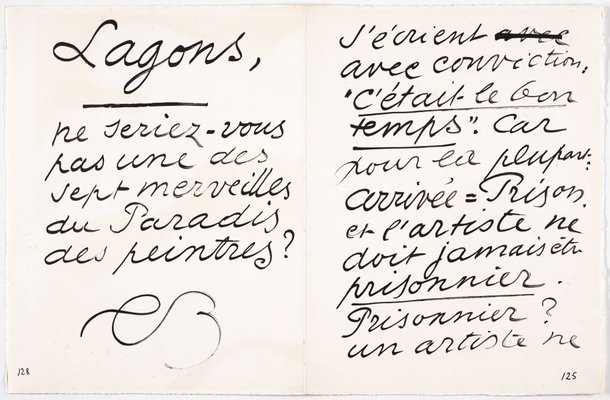 Lagons,
ne seriez-vous
pas une des
sept merveilles
du Paradis
des peintres?
128
J'écrient avec
avec conviction:
"C'était le bon
temps". Car
pour la plupart:
arrivée = Prison.
et l'artiste ne
doit jamais être
prisonnier.
Prisonnier?
un artiste ne
125